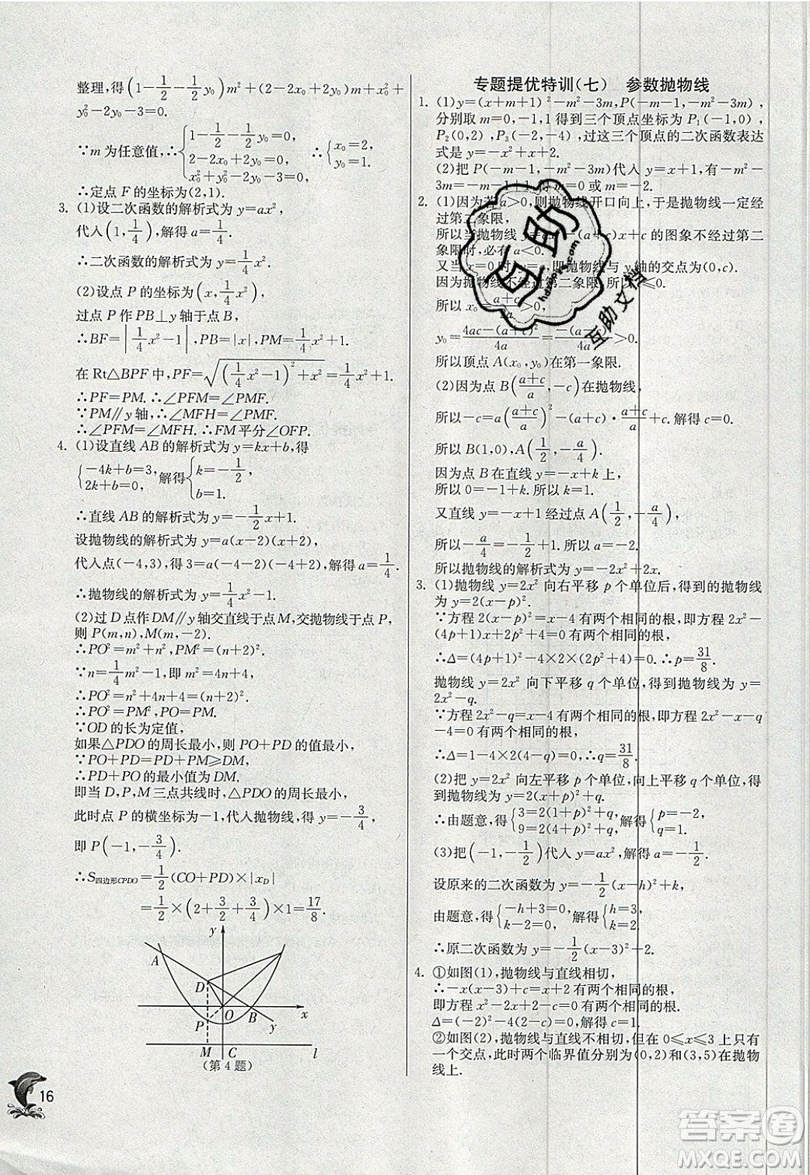 整理，得(1-1/2-1/2y₀)m²+(2-2x₀+2y₀)m+x₀²+
y₀²-2y₀-3=0.
∵m为任意值，∴{1-1/2-1/2y₀=0, 2-2x₀+2y₀=0, x₀²+y₀²-2y₀-3=0. ∴{x₀=2, y₀=1.
∴定点F的坐标为(2,1).
3. (1)设二次函数的解析式为y=ax²，
代入(1,1/4)，得a=1/4.
∴二次函数的解析式为y=1/4x².
(2)设点P的坐标为(x,1/4x²)，
过点P作PB⊥y轴于点B，
∴BF=|1/4x²-1|，PB=|x|，PM=1/4x²+1.
在Rt△BPF中，PF=√((1/4x²-1)²+x²)=1/4x²+1.
∴PF=PM. ∴∠PFM=∠PMF.
∵PM∥y轴，∴∠MFH=∠PMF.
∴∠PFM=∠MFH. ∴FM平分∠OFP.
4. (1)设直线AB的解析式为y=kx+b，得
{-4k+b=3, 2k+b=0, 解得{k=-1/2, b=1.
∴直线AB的解析式为y=-1/2x+1.
设抛物线的解析式为y=a(x-2)(x+2)，
代入点(-4,3)，得3=a(-4-2)(-4+2)，解得a=1/4.
∴抛物线的解析式为y=1/4x²-1.
(2)过D点作DM∥y轴交直线于点M，交抛物线于点P，
则P(m,n)，M(m,-2).
∴PO²=m²+n²，PM²=(n+2)².
∵n=1/4m²-1，∴m²=4n+4，
∴PO²=n²+4n+4=(n+2)².
∴PO²=PM²，∴PO=PM.
∵OD的长为定值，
如果△PDO的周长最小，则PO+PD的值最小，
∵PO+PD=PD+PM≥DM，
∴PD+PO的最小值为DM.
即当D，P，M三点共线时，△PDO的周长最小，
此时点P的横坐标为-1，代入抛物线，得y=-3/4，
即P(-1,-3/4).
∴S四边形CPDO=1/2(CO+PD)×|x_D|
=1/2×(2+3/2+3/4)×1=17/8.
y
A
D
O
B
x
P
M
C
l
(第4题)
16
专题提优特训(七) 参数抛物线
1. (1)y=(x+m+1)²-m²-3m，P(-m-1,-m²-3m)，
分别取m=0，-1，1，得到三个顶点坐标为P₁(-1,0)，
P₂(0,2)，P₃(-2,-4)，过这三个顶点的二次函数表达
式是y=-x²+x+2.
(2)把P(-m-1,-m²-3m)代入y=x+2，有-m²-
3m=-m-1+2，解得m=0或m=-2.
2. (1)因为若a>0，则抛物线开口向上，于是抛物线一定经
过第二象限，
所以当抛物线y=ax²-(a+c)x+c的图象不经过第二
象限时，必有a<0.
又当x=0时，y=c，即抛物线与y轴的交点为(0,c).
因为抛物线不经过第二象限，所以c≤0.
y₀=(4ac-(a+c)²)/4a=-(a-c)²/4a>0.
所以顶点A(x₀,y₀)在第一象限.
(2)因为点B((a+c)/a,-c)在抛物线上，
所以-c=a((a+c)/a)²-(a+c)·(a+c)/a+c. 解得c=0.
所以B(1,0)，A(1/2,-a/4).
因为点B在直线y=-x+k上，
所以0=-1+k，所以k=1.
又直线y=-x+1经过点A(1/2,-a/4)，
所以-a/4=-1/2+1，解得a=-2，
所以抛物线的解析式为y=-2x²+2x.
3. (1)抛物线y=2x²向右平移p个单位后，得到的抛物线
为y=2(x-p)².
∵方程2(x-p)²=x-4有两个相同的根，即方程2x²-
(4p+1)x+2p²+4=0有两个相同的根，
∴Δ=(4p+1)²-4×2×(2p²+4)=0，∴p=31/8.
抛物线y=2x²向下平移q个单位，得到的抛物线为
y=2x²-q.
∵方程2x²-q=x-4有两个相同的根，即方程2x²-
x-q+4=0有两个相同的根，
∴Δ=1-4×2(4-q)=0. ∴q=31/8.
(2)把y=2x²向左平移p个单位，向上平移q个单位，
得到的抛物线为y=2(x+p)²+q.
∴由题意，得{3=2(1+p)²+q, 9=2(4+p)²+q. 解得{p=-2, q=1.
(3)把(-1,-1/2)代入y=ax²，得a=-1/2.
设原来的二次函数为y=-1/2(x-h)²+k，
由题意，得{-h+2=-1, k-1=0. 解得{h=3, k=1.
∴原二次函数为y=-1/2(x-3)²+1.
4. ①如图(1)，抛物线与直线相切，
即方程x²-2x-2+c=0有两个相同的根，
Δ=(-2)²-4(-2+c)=0. 解得c=3.
②如图(2)，抛物线与直线不相切，但在0≤x≤3上只
有一个交点，此时两个临界值分别为(0,2)和(3,5)在抛
物线上.
互助
互助文档
答案卷
MXQE.COM